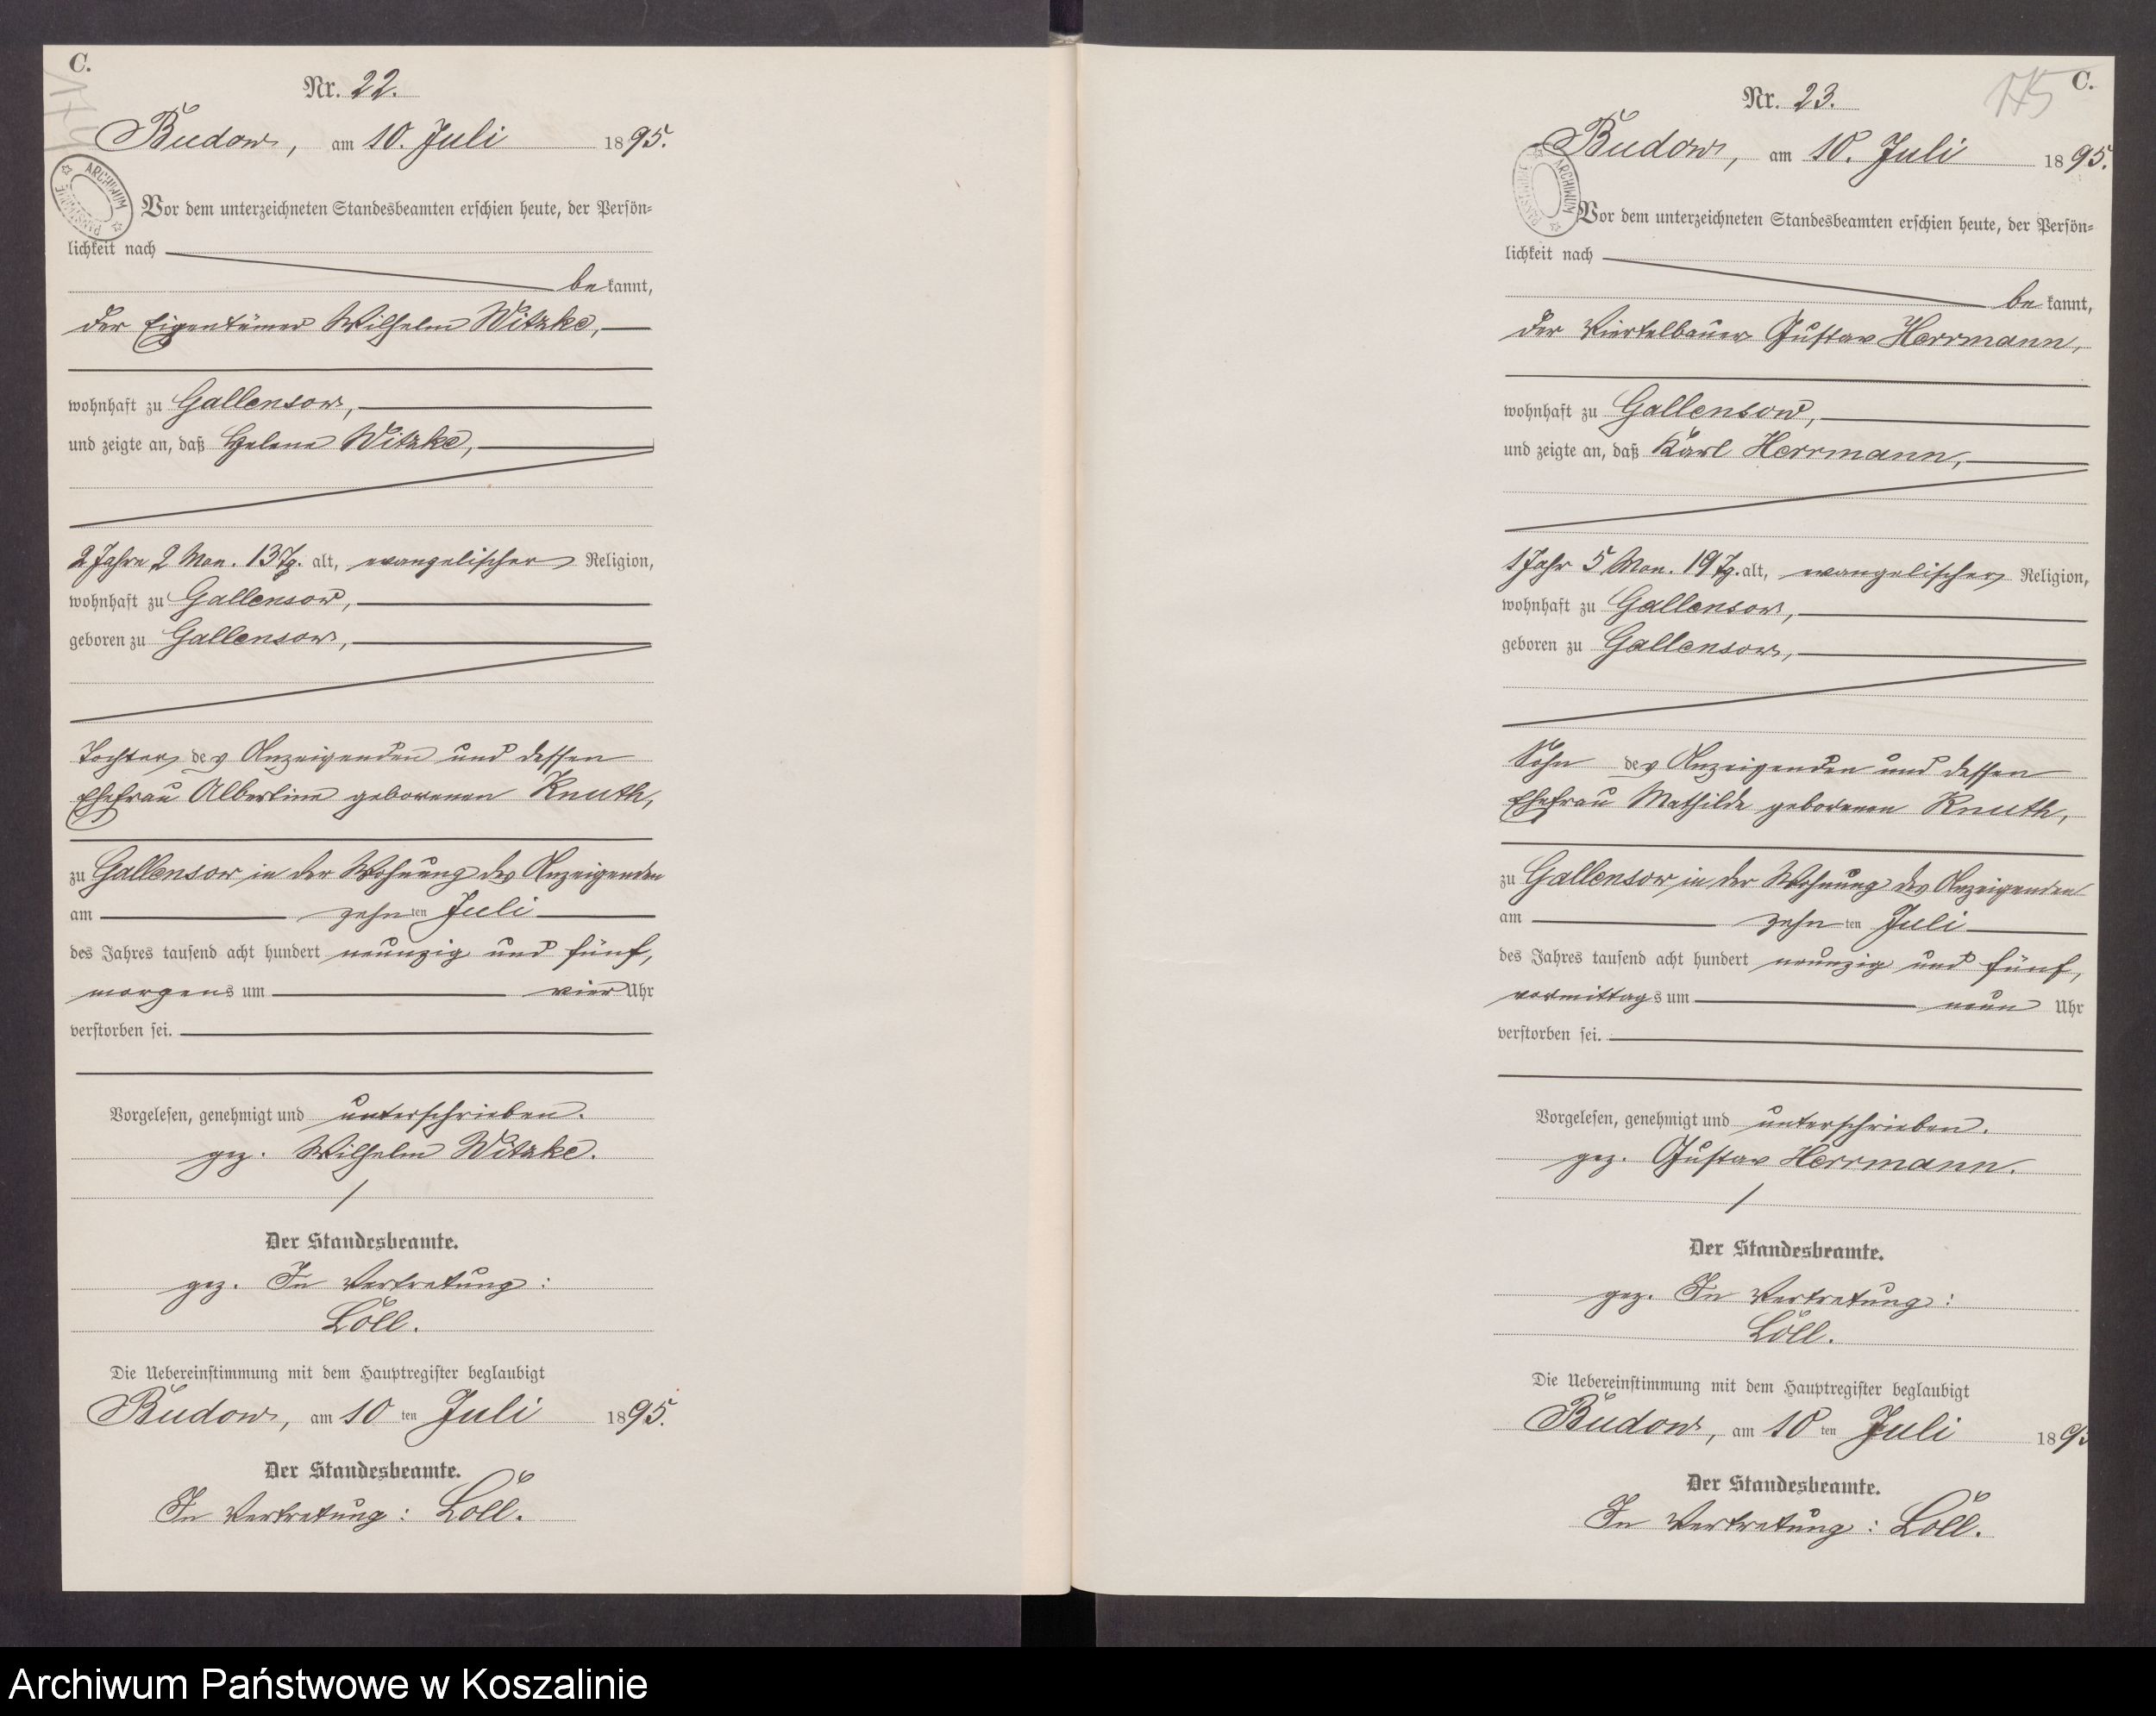 C.
174
Nr. 22.
Budow, am 10. Juli 1895.
ARCHIWUM PAŃSTWOWE
Vor dem unterzeichneten Standesbeamten erschien heute, der Persön-
lichkeit nach
bekannt,
der Eigentümer Wilhelm Witzke,
wohnhaft zu Gallensow,
und zeigte an, daß Helene Witzke,
2 Jahre 2 Mon. 13 Tg. alt, evangelischer Religion,
wohnhaft zu Gallensow,
geboren zu Gallensow,
Tochter des Anzeigenden und dessen
Ehefrau Albertine geborenen Knuth,
zu Gallensow in der Wohnung des Anzeigenden
am zehnten Juli
des Jahres tausend acht hundert neunzig und fünf,
morgens um vier Uhr
verstorben sei.
Vorgelesen, genehmigt und unterschrieben.
gez. Wilhelm Witzke.
Der Standesbeamte.
gez. In Vertretung:
Löll.
Die Uebereinstimmung mit dem Hauptregister beglaubigt
Budow, am 10ten Juli 1895.
Der Standesbeamte.
In Vertretung: Löll.
175
C.
Nr. 23.
Budow, am 10. Juli 1895.
ARCHIWUM PAŃSTWOWE
Vor dem unterzeichneten Standesbeamten erschien heute, der Persön-
lichkeit nach
bekannt,
der Viertelbauer Gustav Herrmann,
wohnhaft zu Gallensow,
und zeigte an, daß Karl Herrmann,
1 Jahr 5 Mon. 19 Tg. alt, evangelischer Religion,
wohnhaft zu Gallensow,
geboren zu Gallensow,
Sohn des Anzeigenden und dessen
Ehefrau Mathilde geborenen Knuth,
zu Gallensow in der Wohnung des Anzeigenden
am zehnten Juli
des Jahres tausend acht hundert neunzig und fünf,
vormittags um neun Uhr
verstorben sei.
Vorgelesen, genehmigt und unterschrieben.
gez. Gustav Herrmann.
Der Standesbeamte.
gez. In Vertretung:
Löll.
Die Uebereinstimmung mit dem Hauptregister beglaubigt
Budow, am 10ten Juli 1895
Der Standesbeamte.
In Vertretung: Löll.
Archiwum Państwowe w Koszalinie